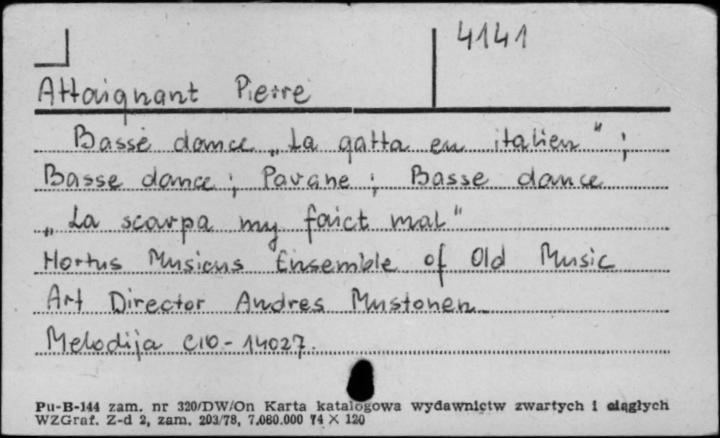 4141
Attaignant Pierre
Basse dance „La gatta en italien";
Basse dance; Pavane; Basse dance
„La scarpa my faict mal"
Hortus Musicus Ensemble of Old Music
Art Director Andres Mustonen
Melodija C10-14027.
Pu-B-144 zam. nr 320/DW/On Karta katalogowa wydawnictw zwartych i ciągłych
WZGraf. Z-d 2, zam. 203/78, 7.080.000 74 × 120